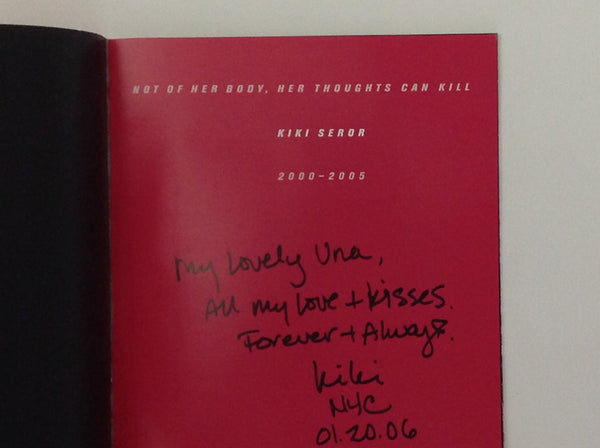 NOT OF HER BODY, HER THOUGHTS CAN KILL
KIKI SEROR
2000–2005
My Lovely Una,
All my love + kisses.
Forever + Always.
Kiki
NYC
01.20.06